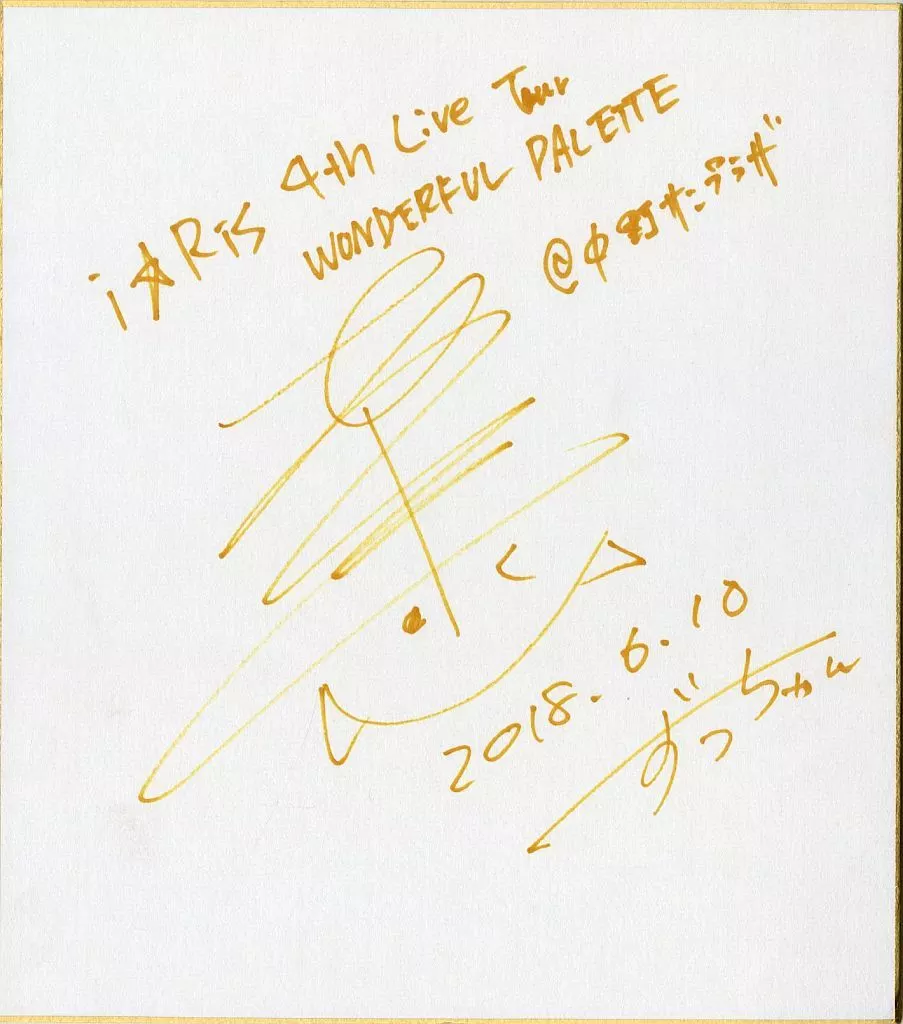 i☆Ris 4th Live Tour
WONDERFUL PALETTE
@中野サンプラザ
2018.6.10
ずっちゃん